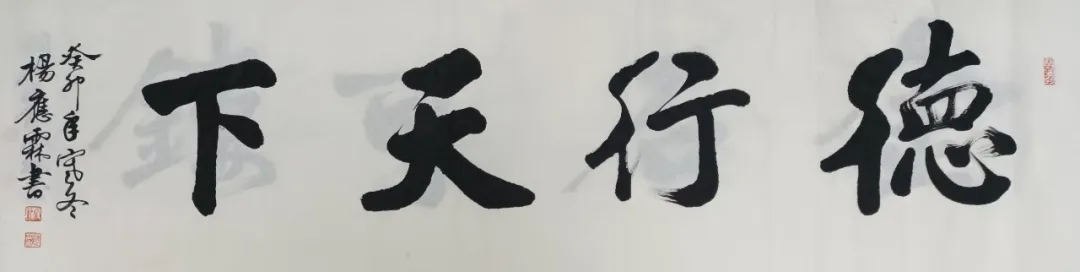 德行天下
癸卯年寒冬
楊應霖書